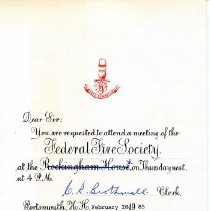 Dear Sir:
You are requested to attend a meeting of the
Federal Fire Society,
at the Rockingham House, on Thursday next,
at 4 P.M.
Clerk.
Portsmouth, N.H. February 28 19 85